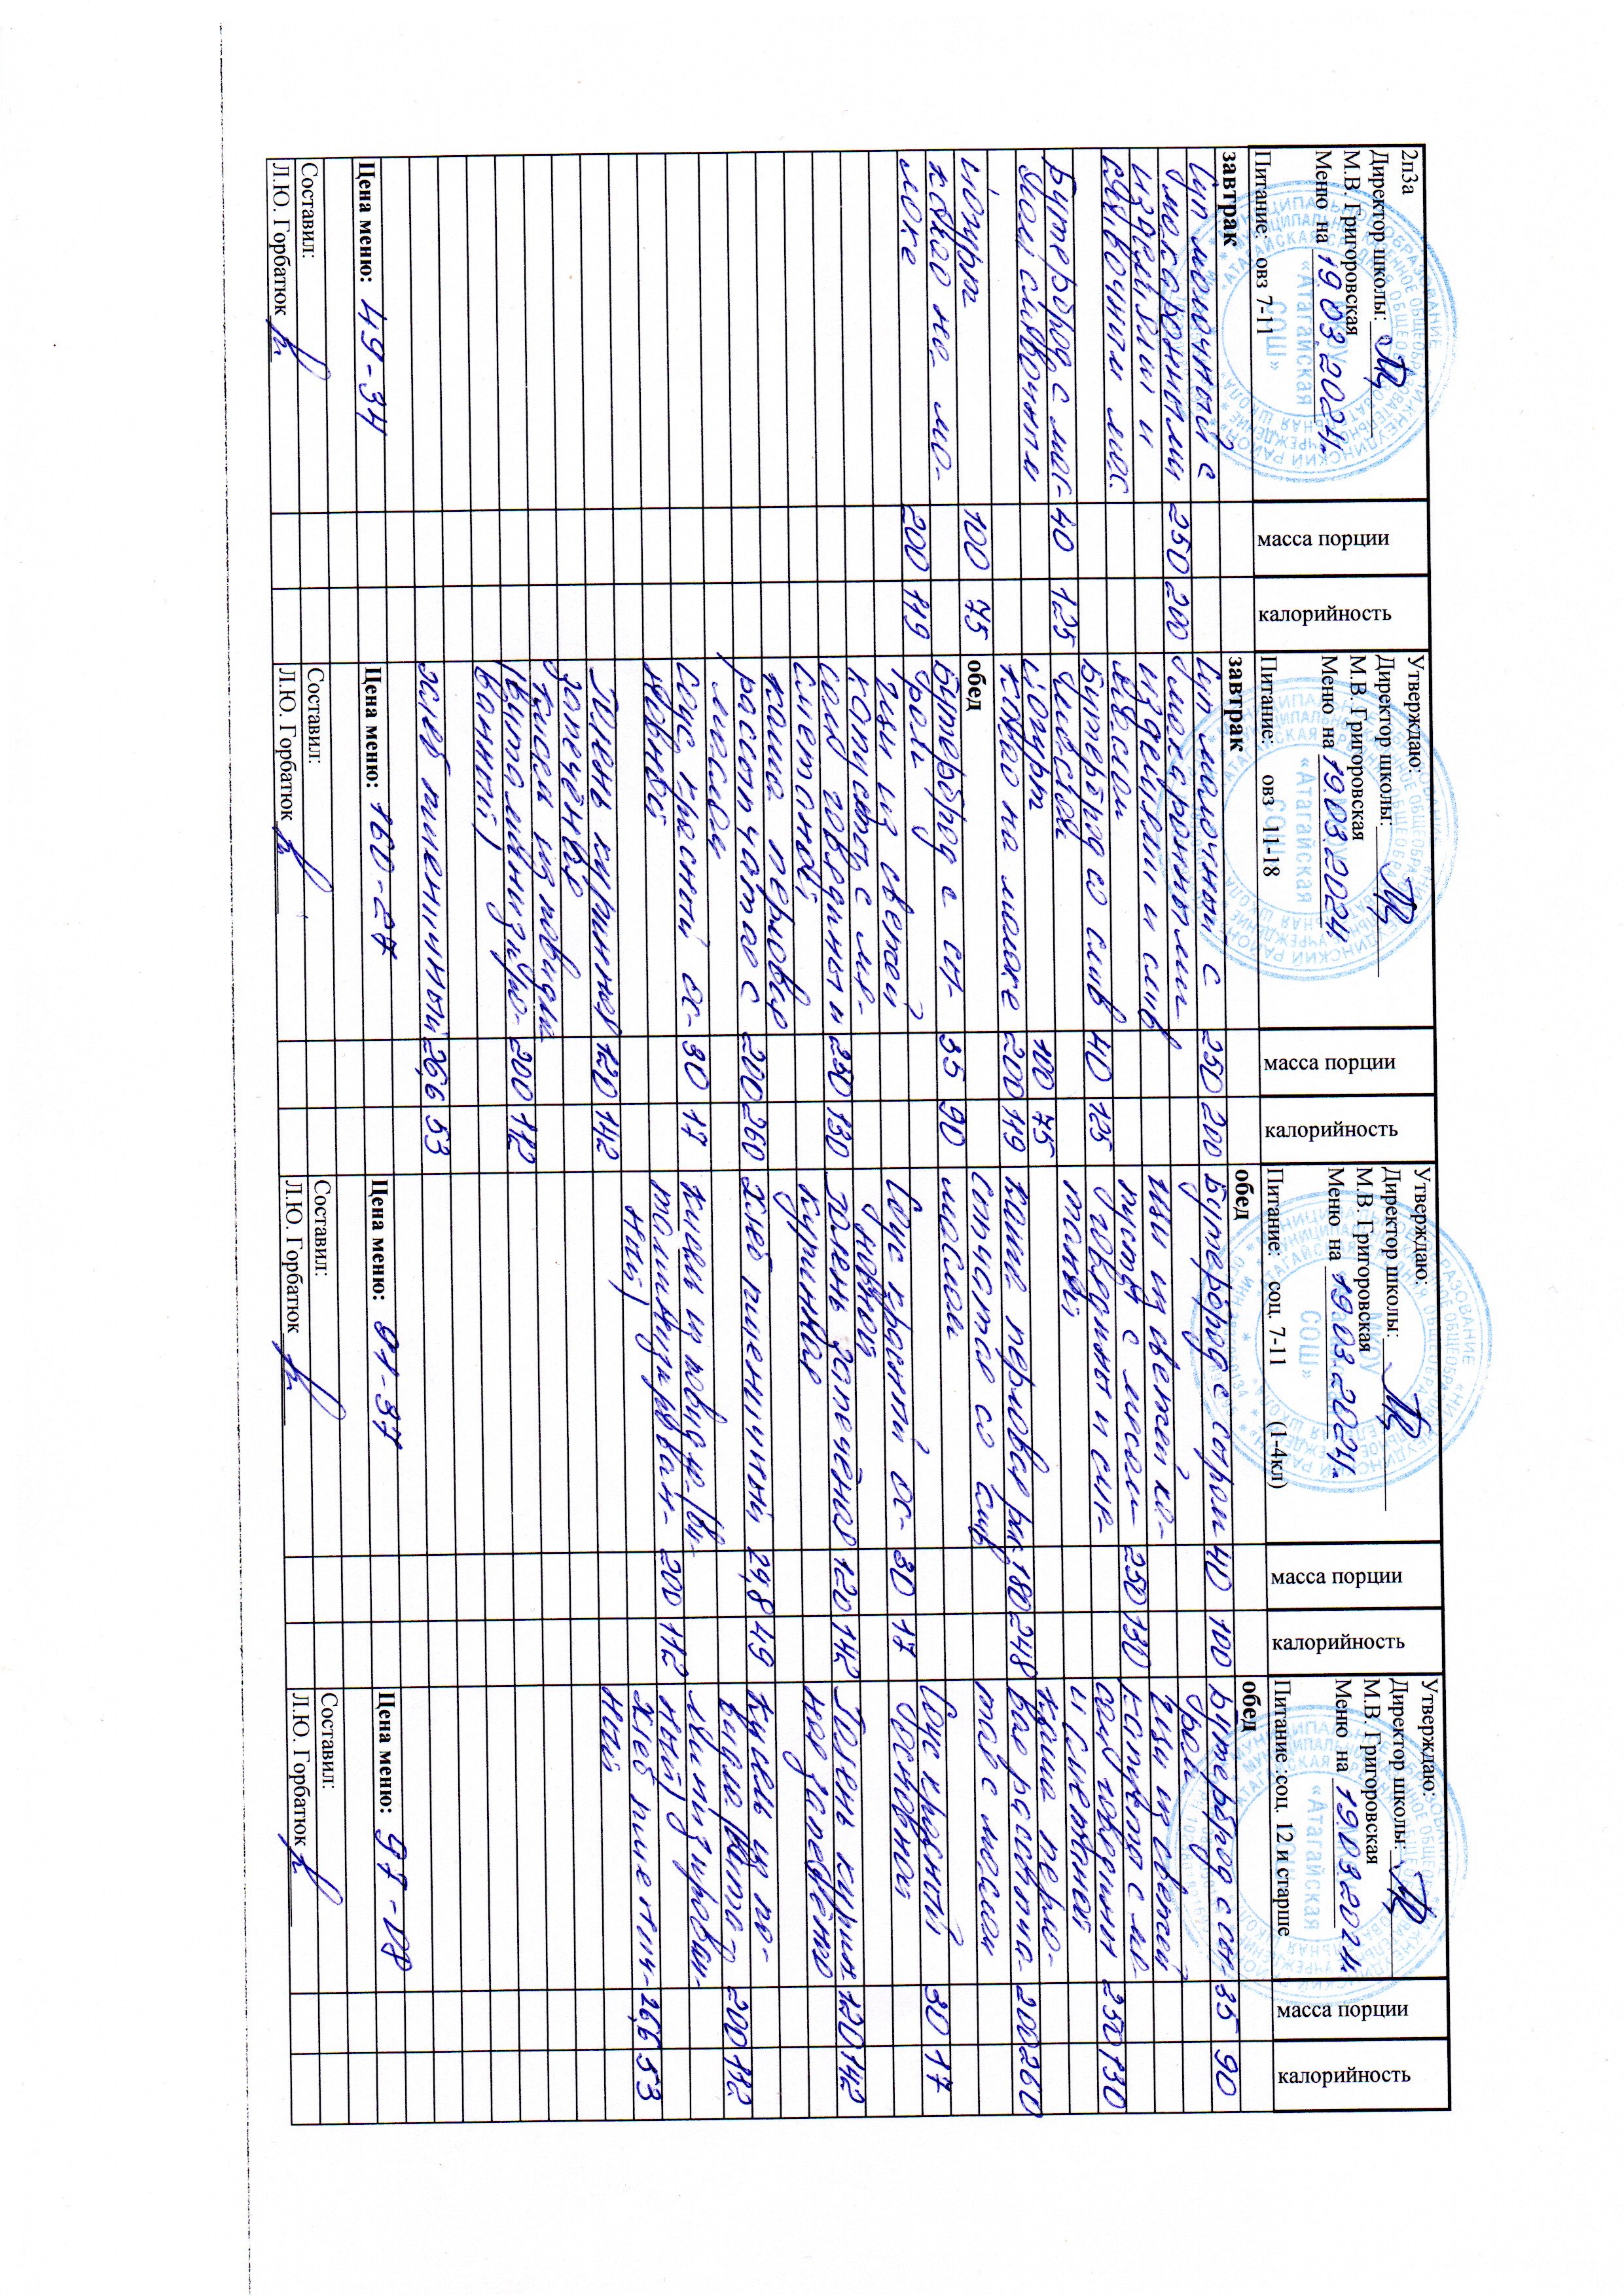 2п3а
Директор школы:
М.В. Григоровская
Меню на 19.03.2024г.
Питание: овз 7-11
масса порции
калорийность
завтрак
Суп молочный с
макаронными 250 200
изделиями и
сливочным мас.
Бутерброд с мас- 40 125
лом сливочным
йогурт 100 75
какао на мо-
локе 200 119
Цена меню: 49-34
Составил:
Л.Ю. Горбатюк
Утверждаю:
Директор школы:
М.В. Григоровская
Меню на 19.03.2024
Питание: овз 11-18
масса порции
калорийность
завтрак
Суп молочный с 250 200
макаронными
изделиями и слив
маслом
Бутерброд со слив 40 125
маслом
йогурт 100 75
какао на молоке 200 119
обед
Бутерброд с сы- 35 90
ром
Щи из свежей
капусты с мя-
сом говядины и 250 130
сметаной
каша перловая
рассыпчатая с 200 260
маслом
Соус красный ос- 30 17
новной
Голень куриная 120 142
запечёная
Кисель из повидла
(витаминизиро- 200 112
ванный)
хлеб пшеничный 26,6 53
Цена меню: 160-27
Составил:
Л.Ю. Горбатюк
Утверждаю:
Директор школы:
М.В. Григоровская
Меню на 19.03.2024г.
Питание: соц. 7-11 (1-4кл)
масса порции
калорийность
обед
Бутерброд с сыром 40 100
Щи из свежей ка-
пусты с мясом 250 130
говядины и сме-
таной
Каша перловая рас- 180 248
сыпчатая со слив
маслом
Соус красный ос- 30 17
новной
Голень запечёная 120 142
куриная
Хлеб пшеничный 24,8 49
Кисель из повидла (ви-
таминизирован- 200 112
ный)
Цена меню: 81-37
Составил:
Л.Ю. Горбатюк
Утверждаю:
Директор школы:
М.В. Григоровская
Меню на 19.03.2024г.
Питание :соц. 12 и старше
масса порции
калорийность
обед
Бутерброд с сы- 35 90
ром
Щи из свежей
капусты с мя-
сом говядины 250 130
и сметаной
Каша перло-
вая рассыпча- 200 260
тая с маслом
Соус красный 30 17
основной
Голень кури- 120 142
ная запечёная
Кисель из по-
видла (вита- 200 112
минизирован-
ный)
Хлеб пшенич- 26,6 53
ный
Цена меню: 97-08
Составил:
Л.Ю. Горбатюк
«Атагайская
СОШ»